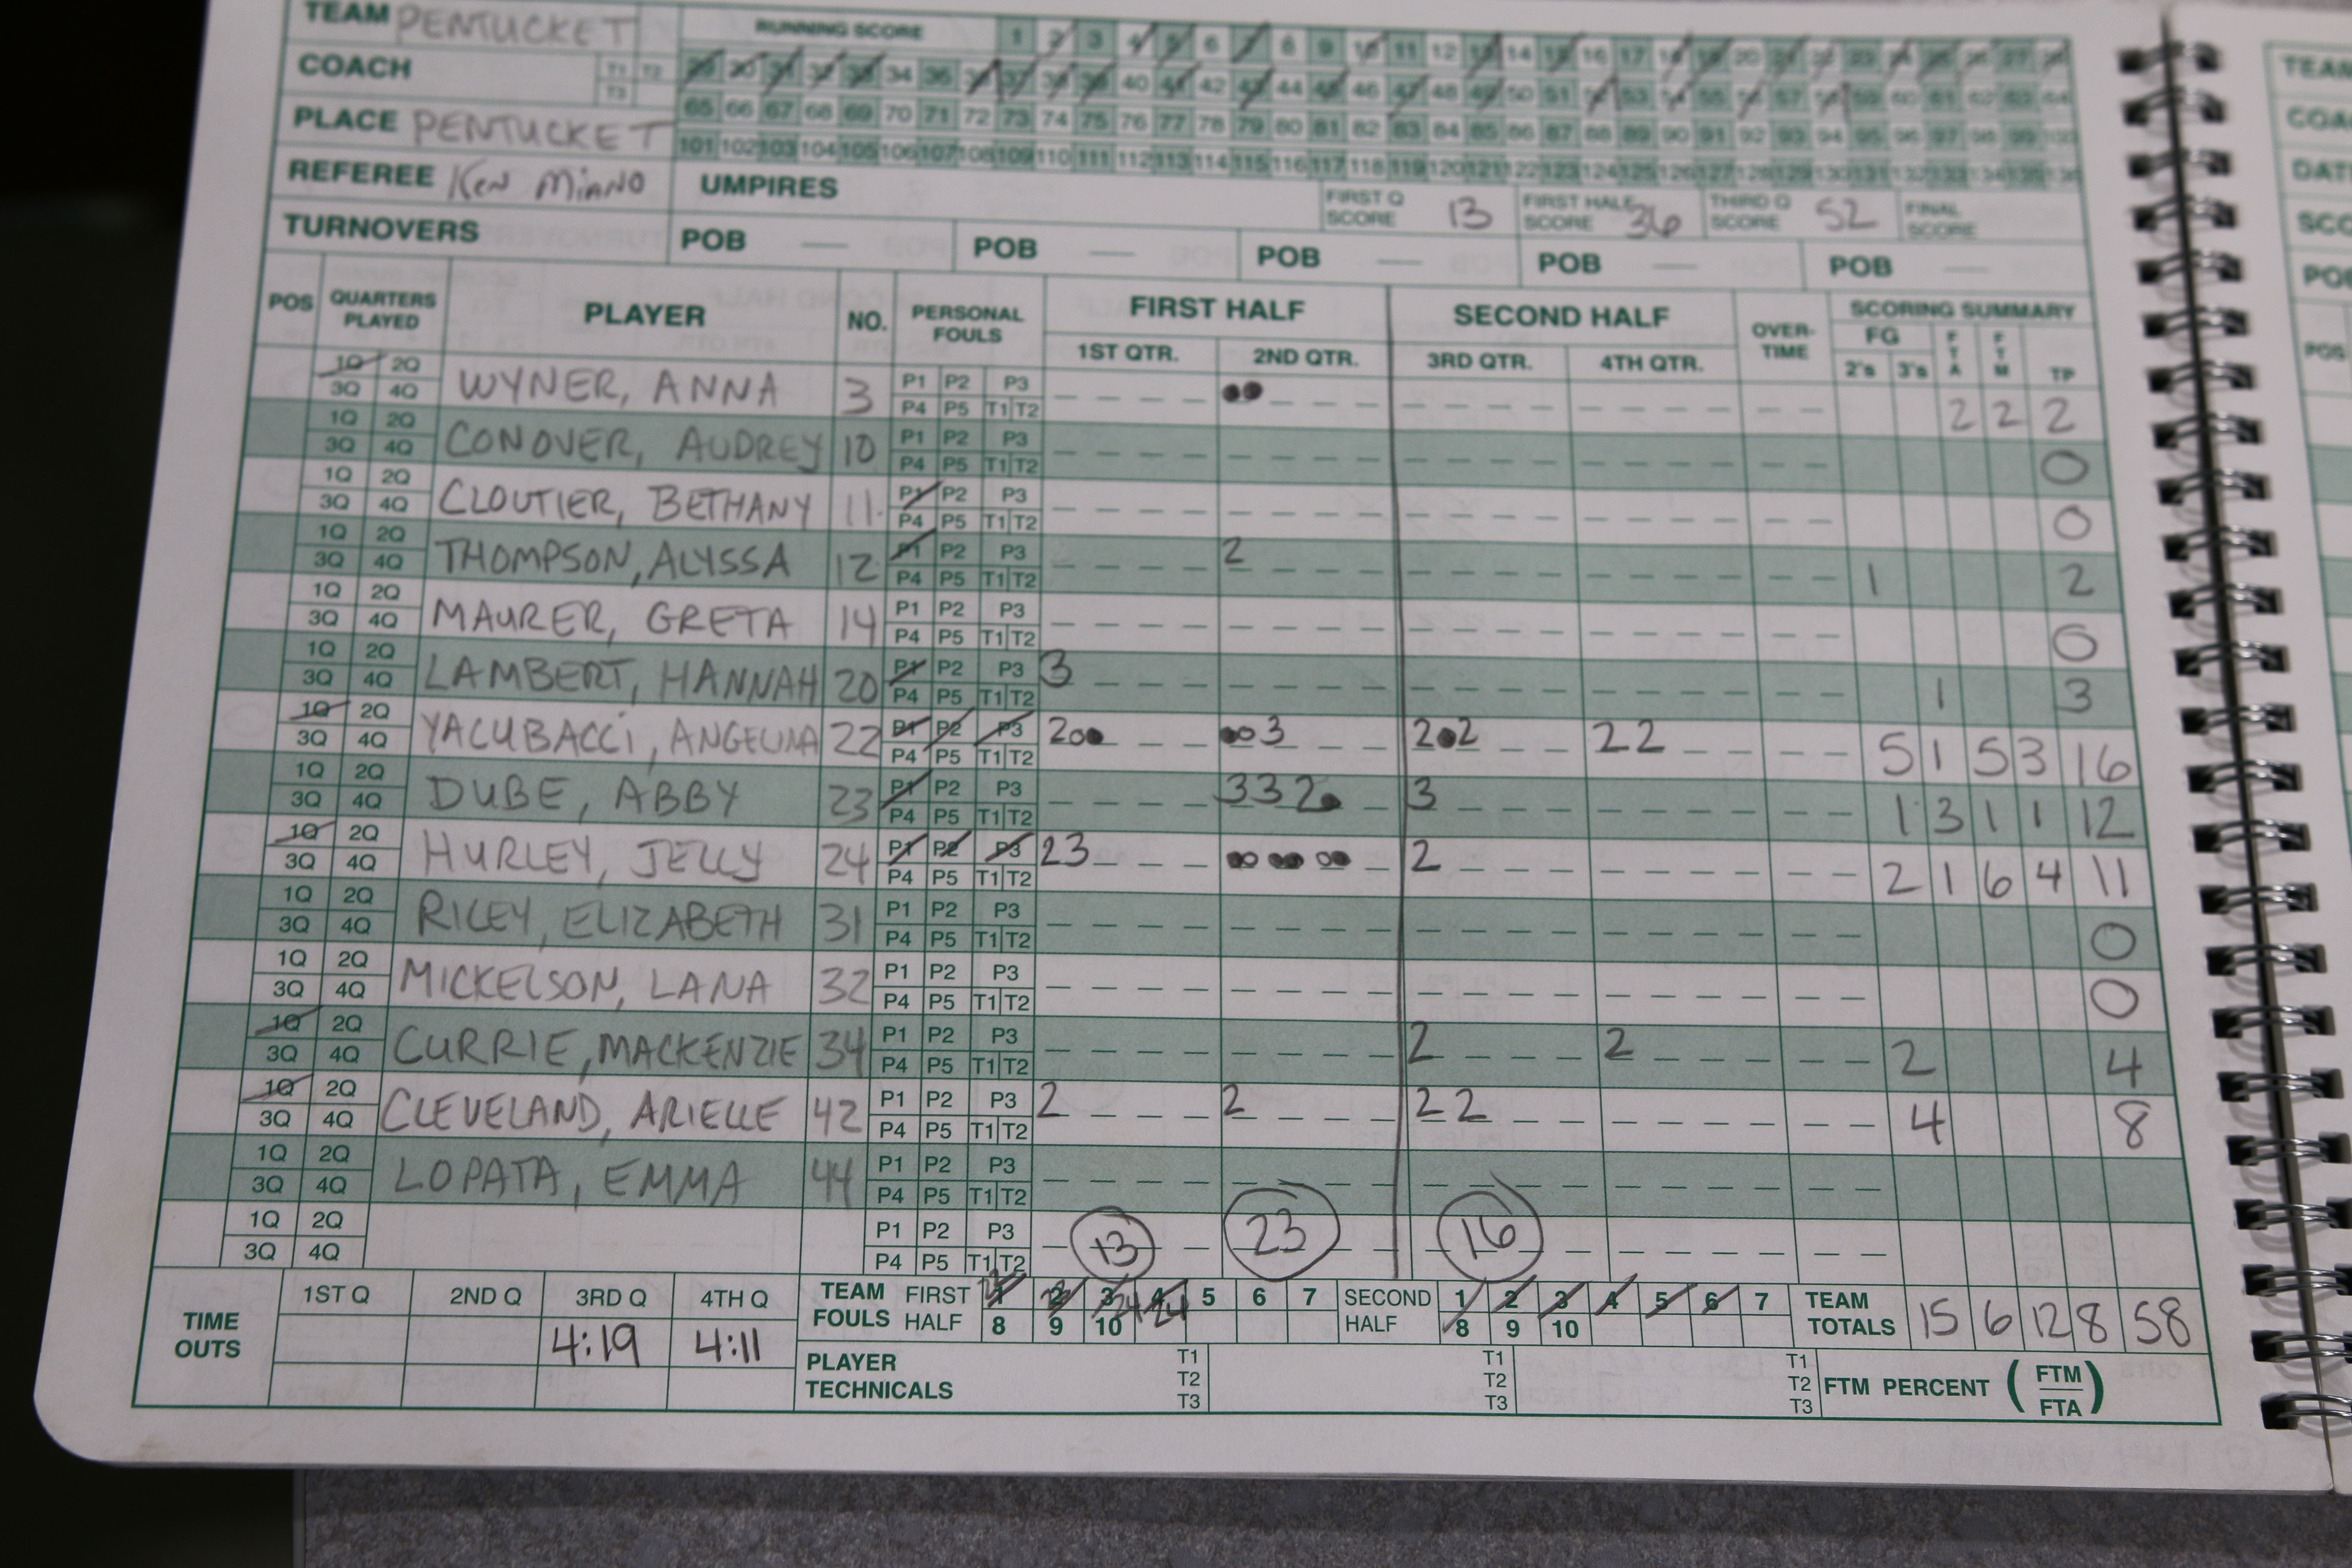 TEAM PENTUCKET RUNNING SCORE 1 2 3 4 5 6 7 8 9 10 11 12 13 14 15 16 17 18 19 20 21 22 23 24 25 26 27 28
COACH T1 T2 T3 29 30 31 32 33 34 35 36 37 38 39 40 41 42 43 44 45 46 47 48 49 50 51 52 53 54 55 56 57 58 59 60 61 62 63 64
65 66 67 68 69 70 71 72 73 74 75 76 77 78 79 80 81 82 83 84 85 86 87 88 89 90 91 92 93 94 95 96 97 98 99 100
PLACE PENTUCKET 101 102 103 104 105 106 107 108 109 110 111 112 113 114 115 116 117 118 119 120 121 122 123 124 125 126 127 128 129 130 131 132 133 134 135 136
REFEREE Ken Miano UMPIRES FIRST Q SCORE 13 FIRST HALF SCORE 36 THIRD Q SCORE 52 FINAL SCORE
TURNOVERS POB — POB — POB — POB — POB —
POS QUARTERS PLAYED PLAYER NO. PERSONAL FOULS FIRST HALF SECOND HALF OVER-TIME SCORING SUMMARY
1ST QTR. 2ND QTR. 3RD QTR. 4TH QTR. FG 2's 3's FTA FTM TP
1Q 2Q WYNER, ANNA 3 P1 P2 P3 2 2 2
3Q 4Q P4 P5 T1 T2
1Q 2Q CONOVER, AUDREY 10 P1 P2 P3 0
3Q 4Q P4 P5 T1 T2
1Q 2Q CLOUTIER, BETHANY 11 P1 P2 P3 0
3Q 4Q P4 P5 T1 T2
1Q 2Q THOMPSON, ALYSSA 12 P1 P2 P3 2 1 2
3Q 4Q P4 P5 T1 T2
1Q 2Q MAURER, GRETA 14 P1 P2 P3 0
3Q 4Q P4 P5 T1 T2
1Q 2Q LAMBERT, HANNAH 20 P1 P2 P3 3 1 3
3Q 4Q P4 P5 T1 T2
1Q 2Q YACUBACCI, ANGELINA 22 P1 P2 P3 2○● ●○3 2●2 22 5 1 5 3 16
3Q 4Q P4 P5 T1 T2
1Q 2Q DUBE, ABBY 23 P1 P2 P3 332● 3 1 3 1 1 12
3Q 4Q P4 P5 T1 T2
1Q 2Q HURLEY, JELLY 24 P1 P2 P3 23 ●○ ●● ○● 2 2 1 6 4 11
3Q 4Q P4 P5 T1 T2
1Q 2Q RILEY, ELIZABETH 31 P1 P2 P3 0
3Q 4Q P4 P5 T1 T2
1Q 2Q MICKELSON, LANA 32 P1 P2 P3 0
3Q 4Q P4 P5 T1 T2
1Q 2Q CURRIE, MACKENZIE 34 P1 P2 P3 2 2 2 4
3Q 4Q P4 P5 T1 T2
1Q 2Q CLEVELAND, ARIELLE 42 P1 P2 P3 2 2 22 4 8
3Q 4Q P4 P5 T1 T2
1Q 2Q LOPATA, EMMA 44 P1 P2 P3
3Q 4Q P4 P5 T1 T2
1Q 2Q P1 P2 P3 13 23 16
3Q 4Q P4 P5 T1 T2
TIME OUTS 1ST Q 2ND Q 3RD Q 4TH Q TEAM FOULS FIRST HALF 1 2 3 4 5 6 7 SECOND HALF 1 2 3 4 5 6 7 TEAM TOTALS 15 6 12 8 58
4:19 4:11 8 9 10 8 9 10
PLAYER TECHNICALS T1 T2 T3 T1 T2 T3 T1 T2 T3 FTM PERCENT (FTM/FTA)
TEAM
COA
DATE
SCO
POB
POS